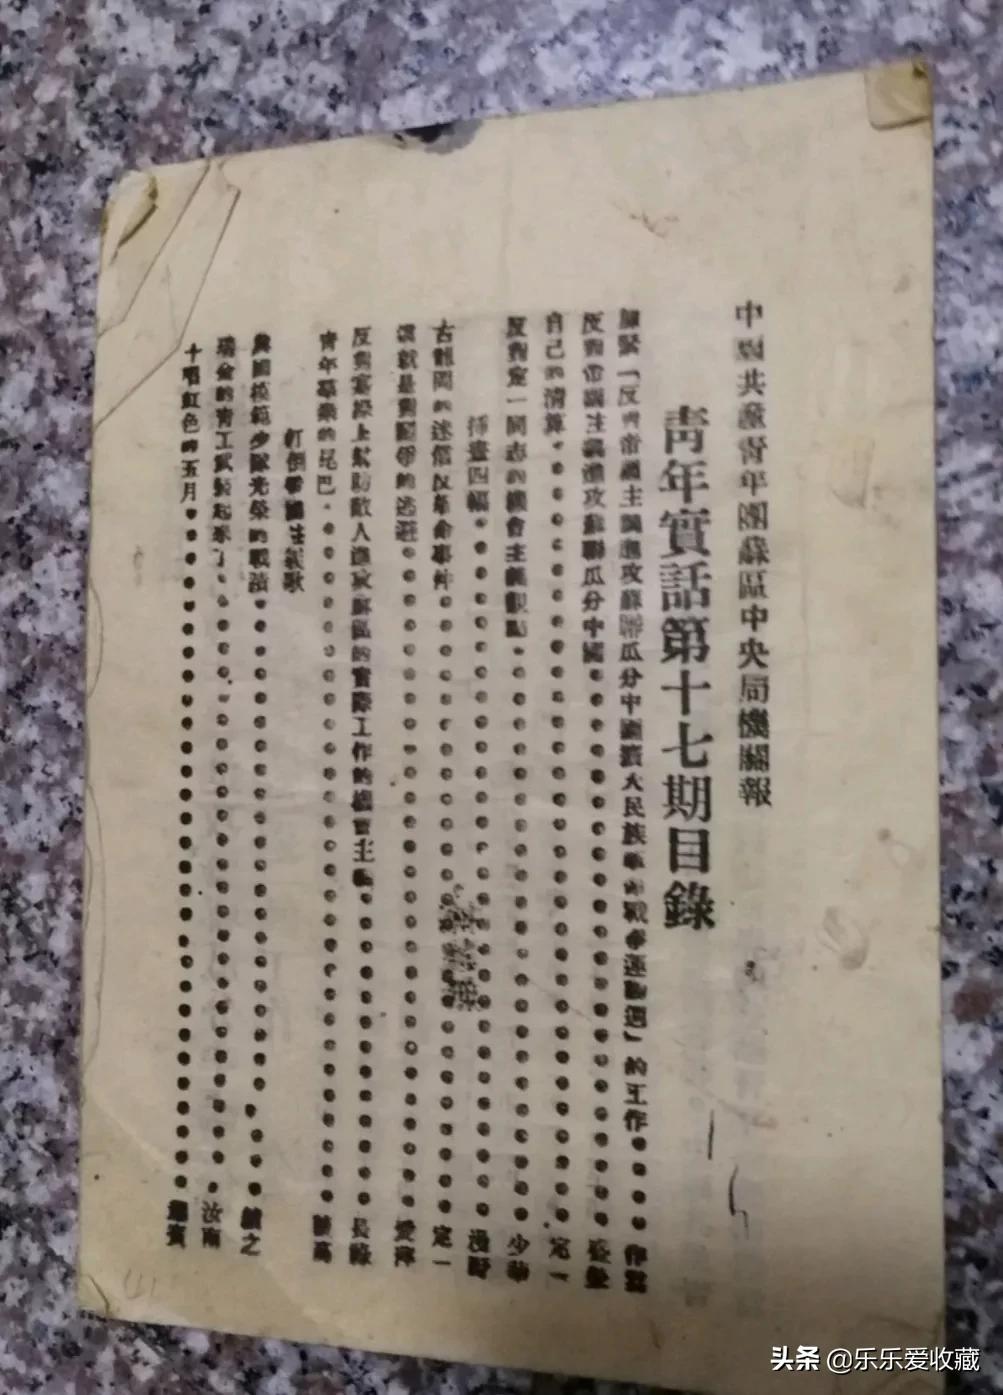 中國共產青年團蘇區中央局機關報
青年實話第十七期目錄
加緊「反對帝國主義進攻蘇聯瓜分中國擴大民族革命戰爭運動週」的工作
反對帝國主義進攻蘇聯瓜分中國
自己的清算 定一
反對定一同志的機會主義觀點 少華
插畫四幅
古龍岡的迷信反革命事件 定一
這就是對困難的逃避 愛萍
反對客操上幫助敵人進攻蘇區的實際工作的機會主義
青年羣衆的尾巴
打倒帝國主義歌
興國模範少隊光榮的戰蹟 績之
瑞金的青工武裝起來了 汝南
十唱紅色的五月
头条 @乐乐爱收藏